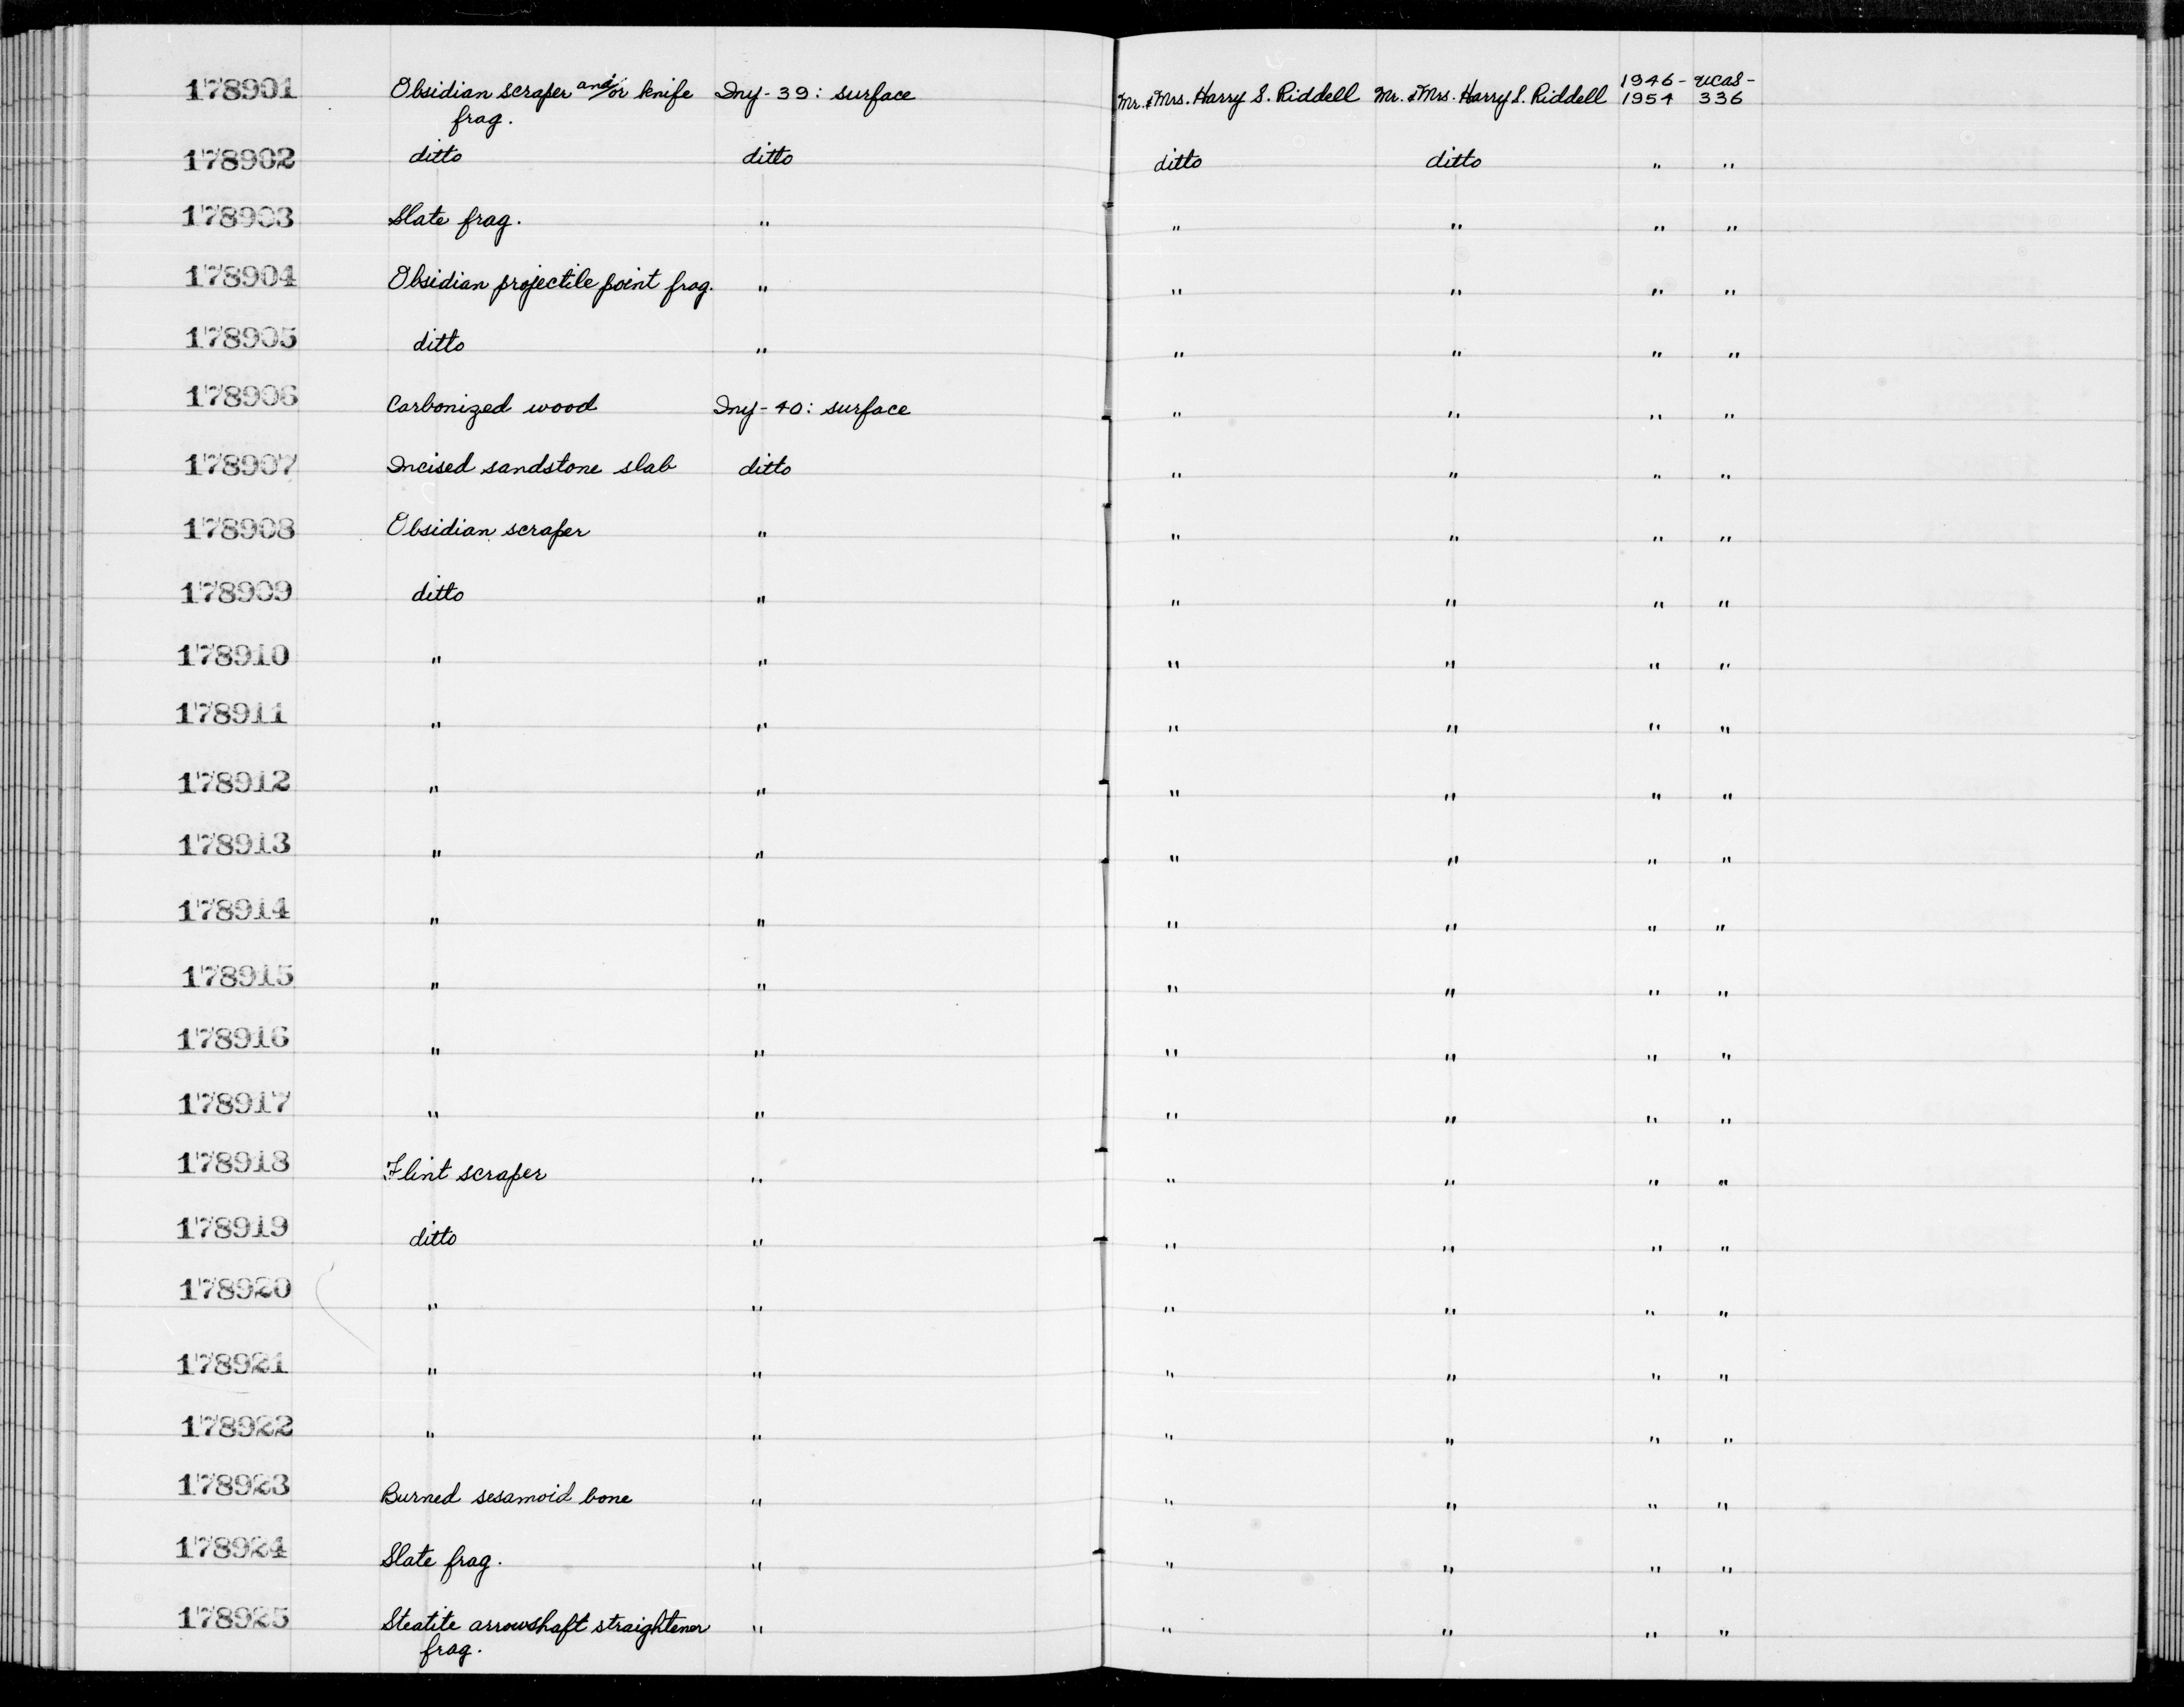 178901 Obsidian scraper and/or knife Iny-39: surface Mr. & Mrs. Harry S. Riddell Mr. & Mrs. Harry S. Riddell 1946- UCAS-
frag. 1954 336
178902 ditto ditto ditto ditto " "
178903 Slate frag. " " " " "
178904 Obsidian projectile point frag. " " " " "
178905 ditto " " " " "
178906 Carbonized wood Iny-40: surface " " " "
178907 Incised sandstone slab ditto " " " "
178908 Obsidian scraper " " " " "
178909 ditto " " " " "
178910 " " " " " "
178911 " " " " " "
178912 " " " " " "
178913 " " " " " "
178914 " " " " " "
178915 " " " " " "
178916 " " " " " "
178917 " " " " " "
178918 Flint scraper " " " " "
178919 ditto " " " " "
178920 " " " " " "
178921 " " " " " "
178922 " " " " " "
178923 Burned sesamoid bone " " " " "
178924 Slate frag. " " " " "
178925 Steatite arrowshaft straightener " " " " "
frag.